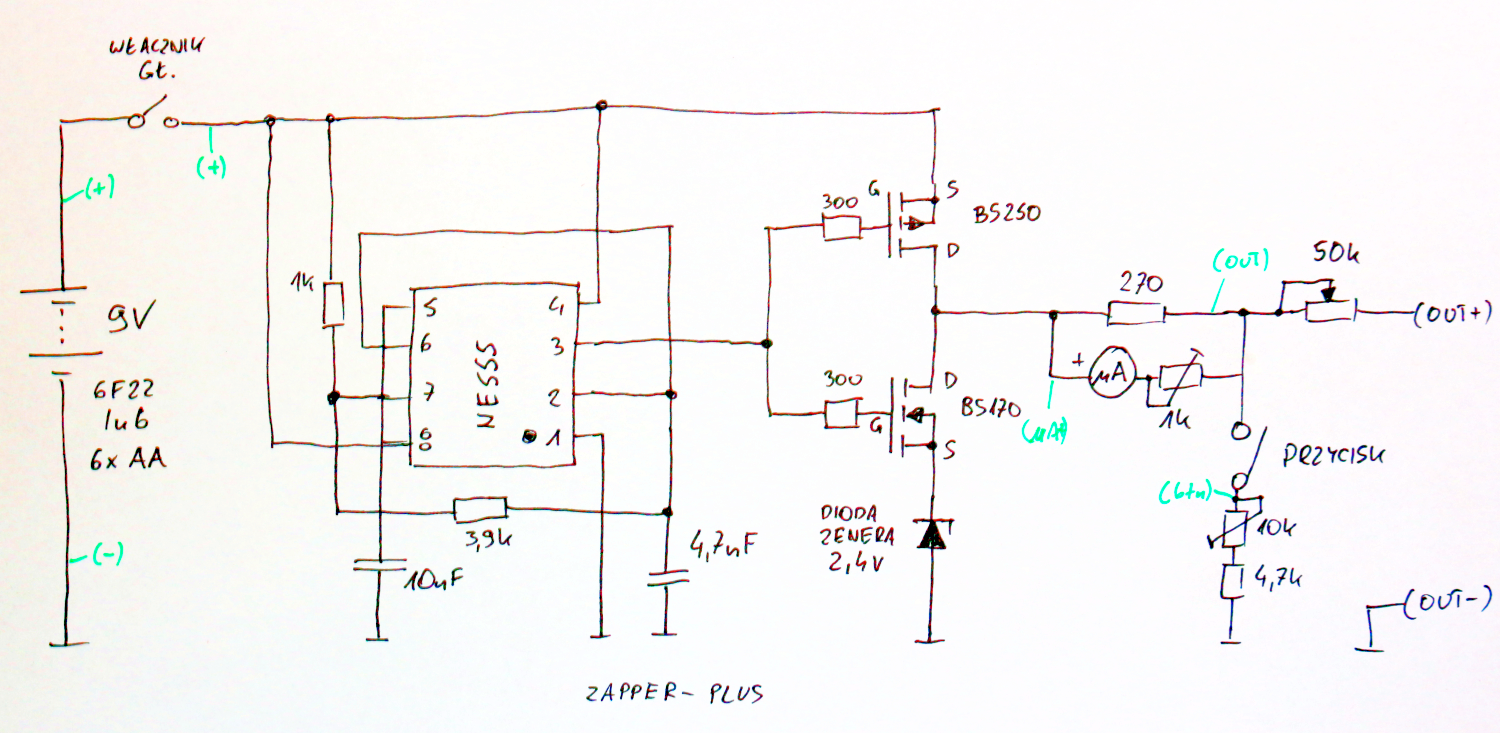 WŁĄCZNIK
GŁ.
(+)
(+)
9V
6F22
lub
6x AA
(-)
1k
5
6
7
8
4
3
2
1
NE555
3,9k
10nF
4,7nF
300
G
S
D
BS250
300
G
D
S
BS170
DIODA
ZENERA
2,4V
270
(OUT)
50k
(OUT+)
+
µA
1k
(µA)
PRZYCISK
(btn)
10k
4,7k
(OUT-)
ZAPPER-PLUS